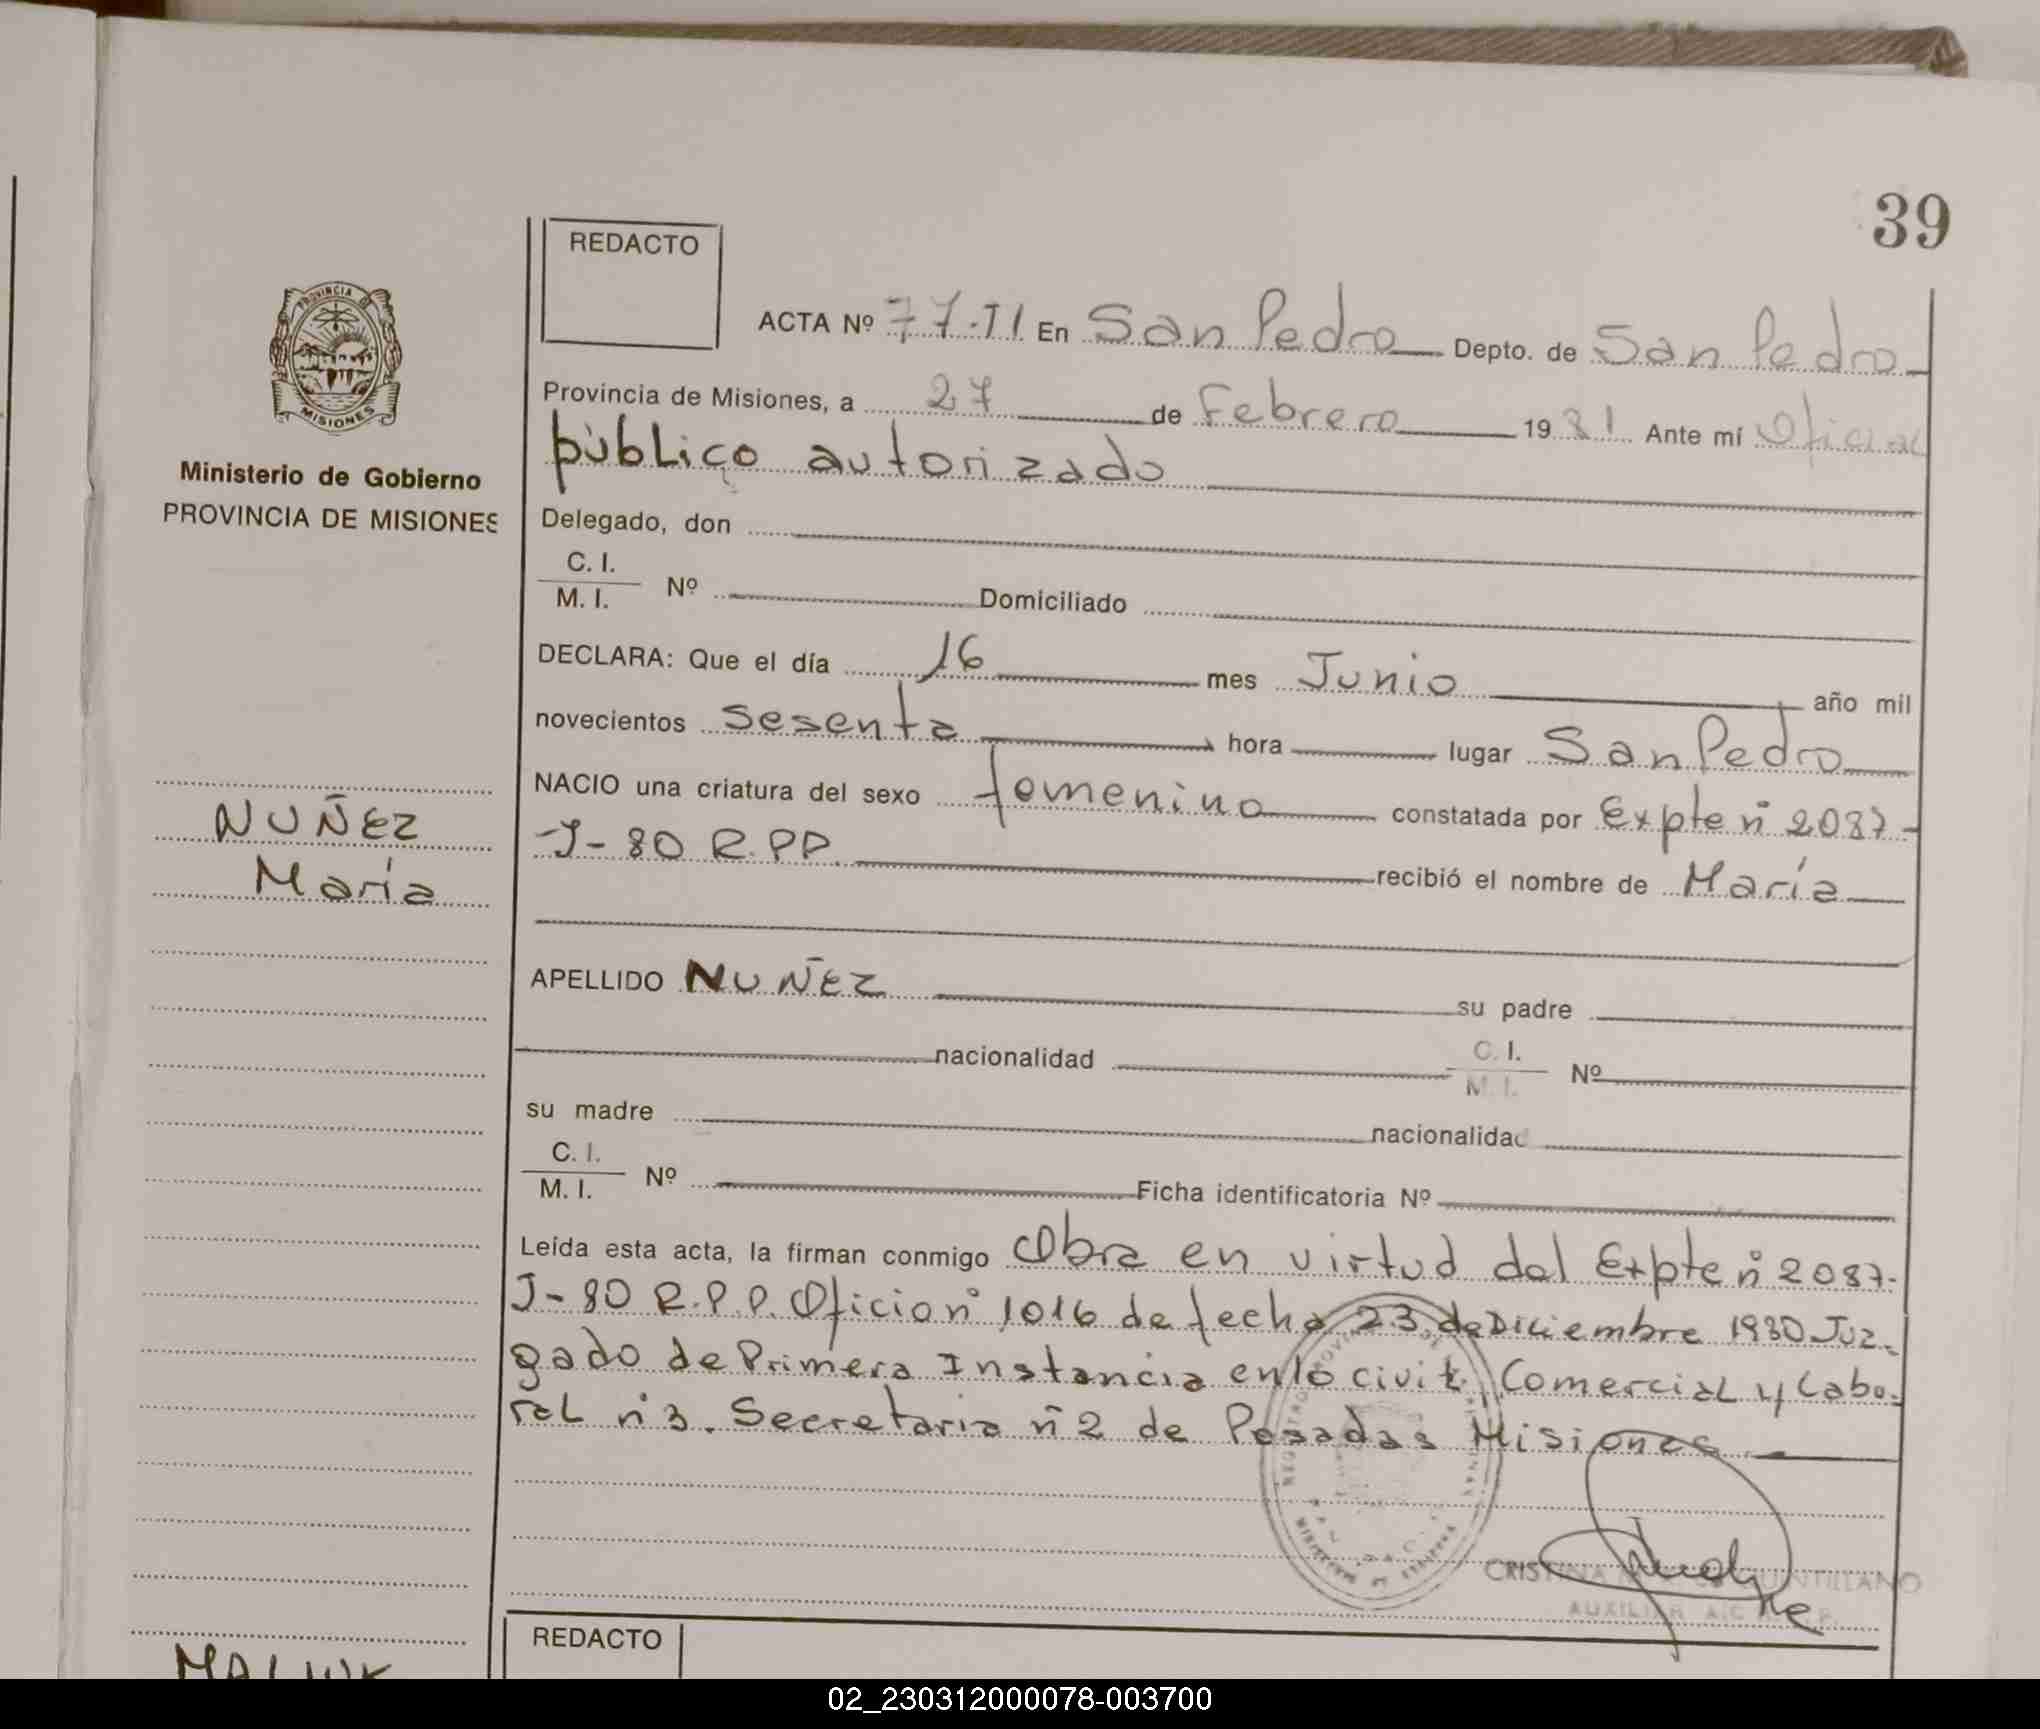 39
REDACTO
PROVINCIA DE
MISIONES
ACTA Nº 77-II En San Pedro Depto. de San Pedro
Provincia de Misiones, a 27 de Febrero 1981 Ante mí Oficial
público autorizado
Ministerio de Gobierno
PROVINCIA DE MISIONES
Delegado, don
C. I.
M. I. Nº Domiciliado
DECLARA: Que el día 16 mes Junio año mil
novecientos sesenta hora lugar San Pedro
NACIO una criatura del sexo femenino constatada por Expte nº 2087-
NUÑEZ
María
J-80 R.PP. recibió el nombre de María
APELLIDO NUÑEZ su padre
nacionalidad C. I.
M. I. Nº
su madre nacionalidad
C. I.
M. I. Nº Ficha identificatoria Nº
Leída esta acta, la firman conmigo Obra en virtud del Expte nº 2087-
J-80 R.P.P. Oficio nº 1016 de fecha 23 de Diciembre 1980 Juz-
gado de Primera Instancia en lo civil, Comercial y Labo-
ral nº 3. Secretaria nº 2 de Posadas Misiones
CRISTINA QUINTILLANO
AUXILIAR
REDACTO
02_230312000078-003700